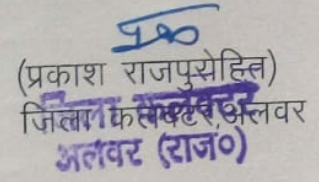 (प्रकाश राजपुरोहित)
जिला कलक्टर, अलवर
जिला कलक्टर
अलवर (राज०)